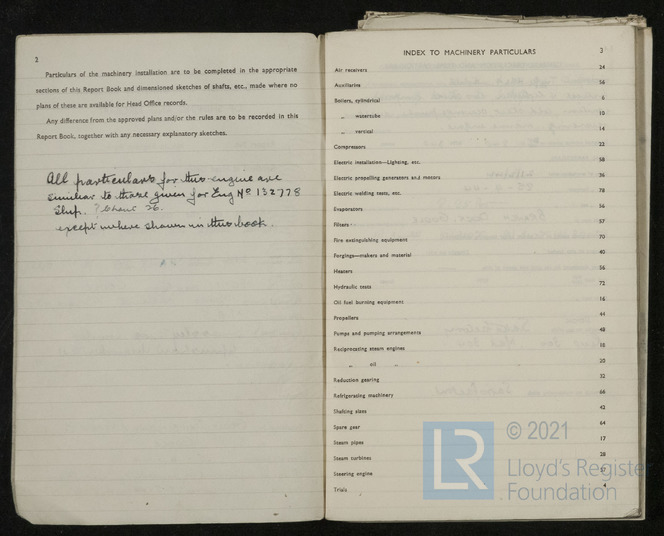 2
Particulars of the machinery installation are to be completed in the appropriate
sections of this Report Book and dimensioned sketches of shafts, etc., made where no
plans of these are available for Head Office records.
Any difference from the approved plans and/or the rules are to be recorded in this
Report Book, together with any necessary explanatory sketches.
All particulars for this engine are
similar to those given for Eng No 132778
Ship. 26.
except where shown in this book.
INDEX TO MACHINERY PARTICULARS 3
Air receivers 24
Auxiliaries 56
Boilers, cylindrical 6
„ watertube 10
„ vertical 14
Compressors 22
Electric installation—Lighting, etc. 58
Electric propelling generators and motors 36
Electric welding tests, etc. 78
Evaporators 56
Filters 57
Fire extinguishing equipment 70
Forgings—makers and material 40
Heaters 56
Hydraulic tests 72
Oil fuel burning equipment 16
Propellers 44
Pumps and pumping arrangements 48
Reciprocating steam engines 18
„ oil „ 20
Reduction gearing 32
Refrigerating machinery 66
Shafting sizes 42
Spare gear 64
Steam pipes 17
Steam turbines 28
Steering engine 57
Trials 4
LR
© 2021
Lloyd's Register
Foundation